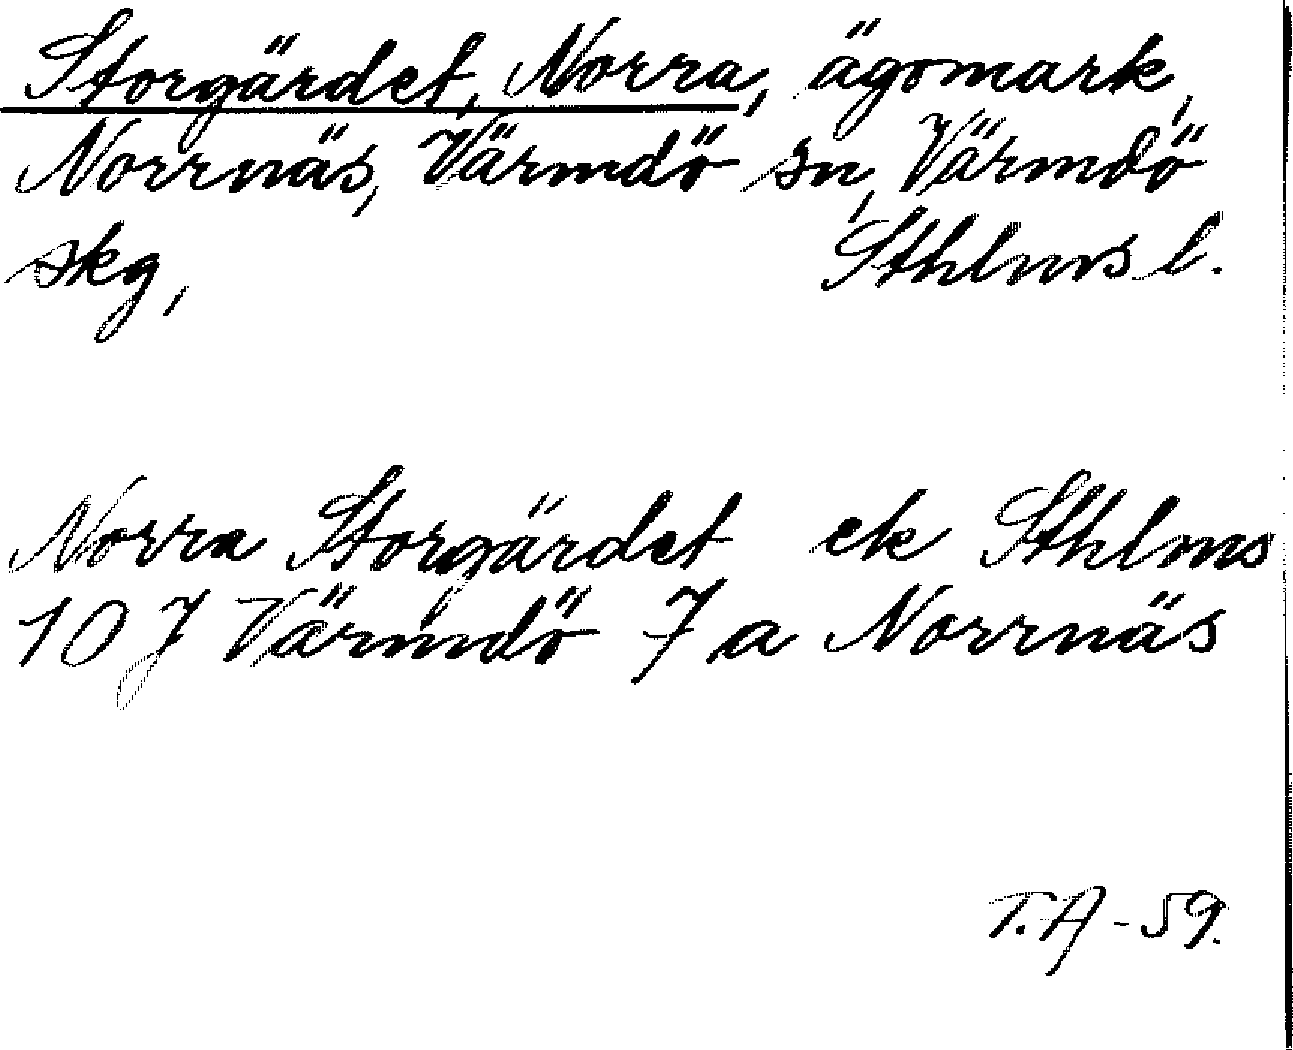 Storgärdet, Norra, ägomark,
Norrnäs, Värmdö sn, Värmdö
skg, Sthlms l.
Norra Storgärdet ek Sthlms
10 J Värmdö 7 a Norrnäs
T.A-59.